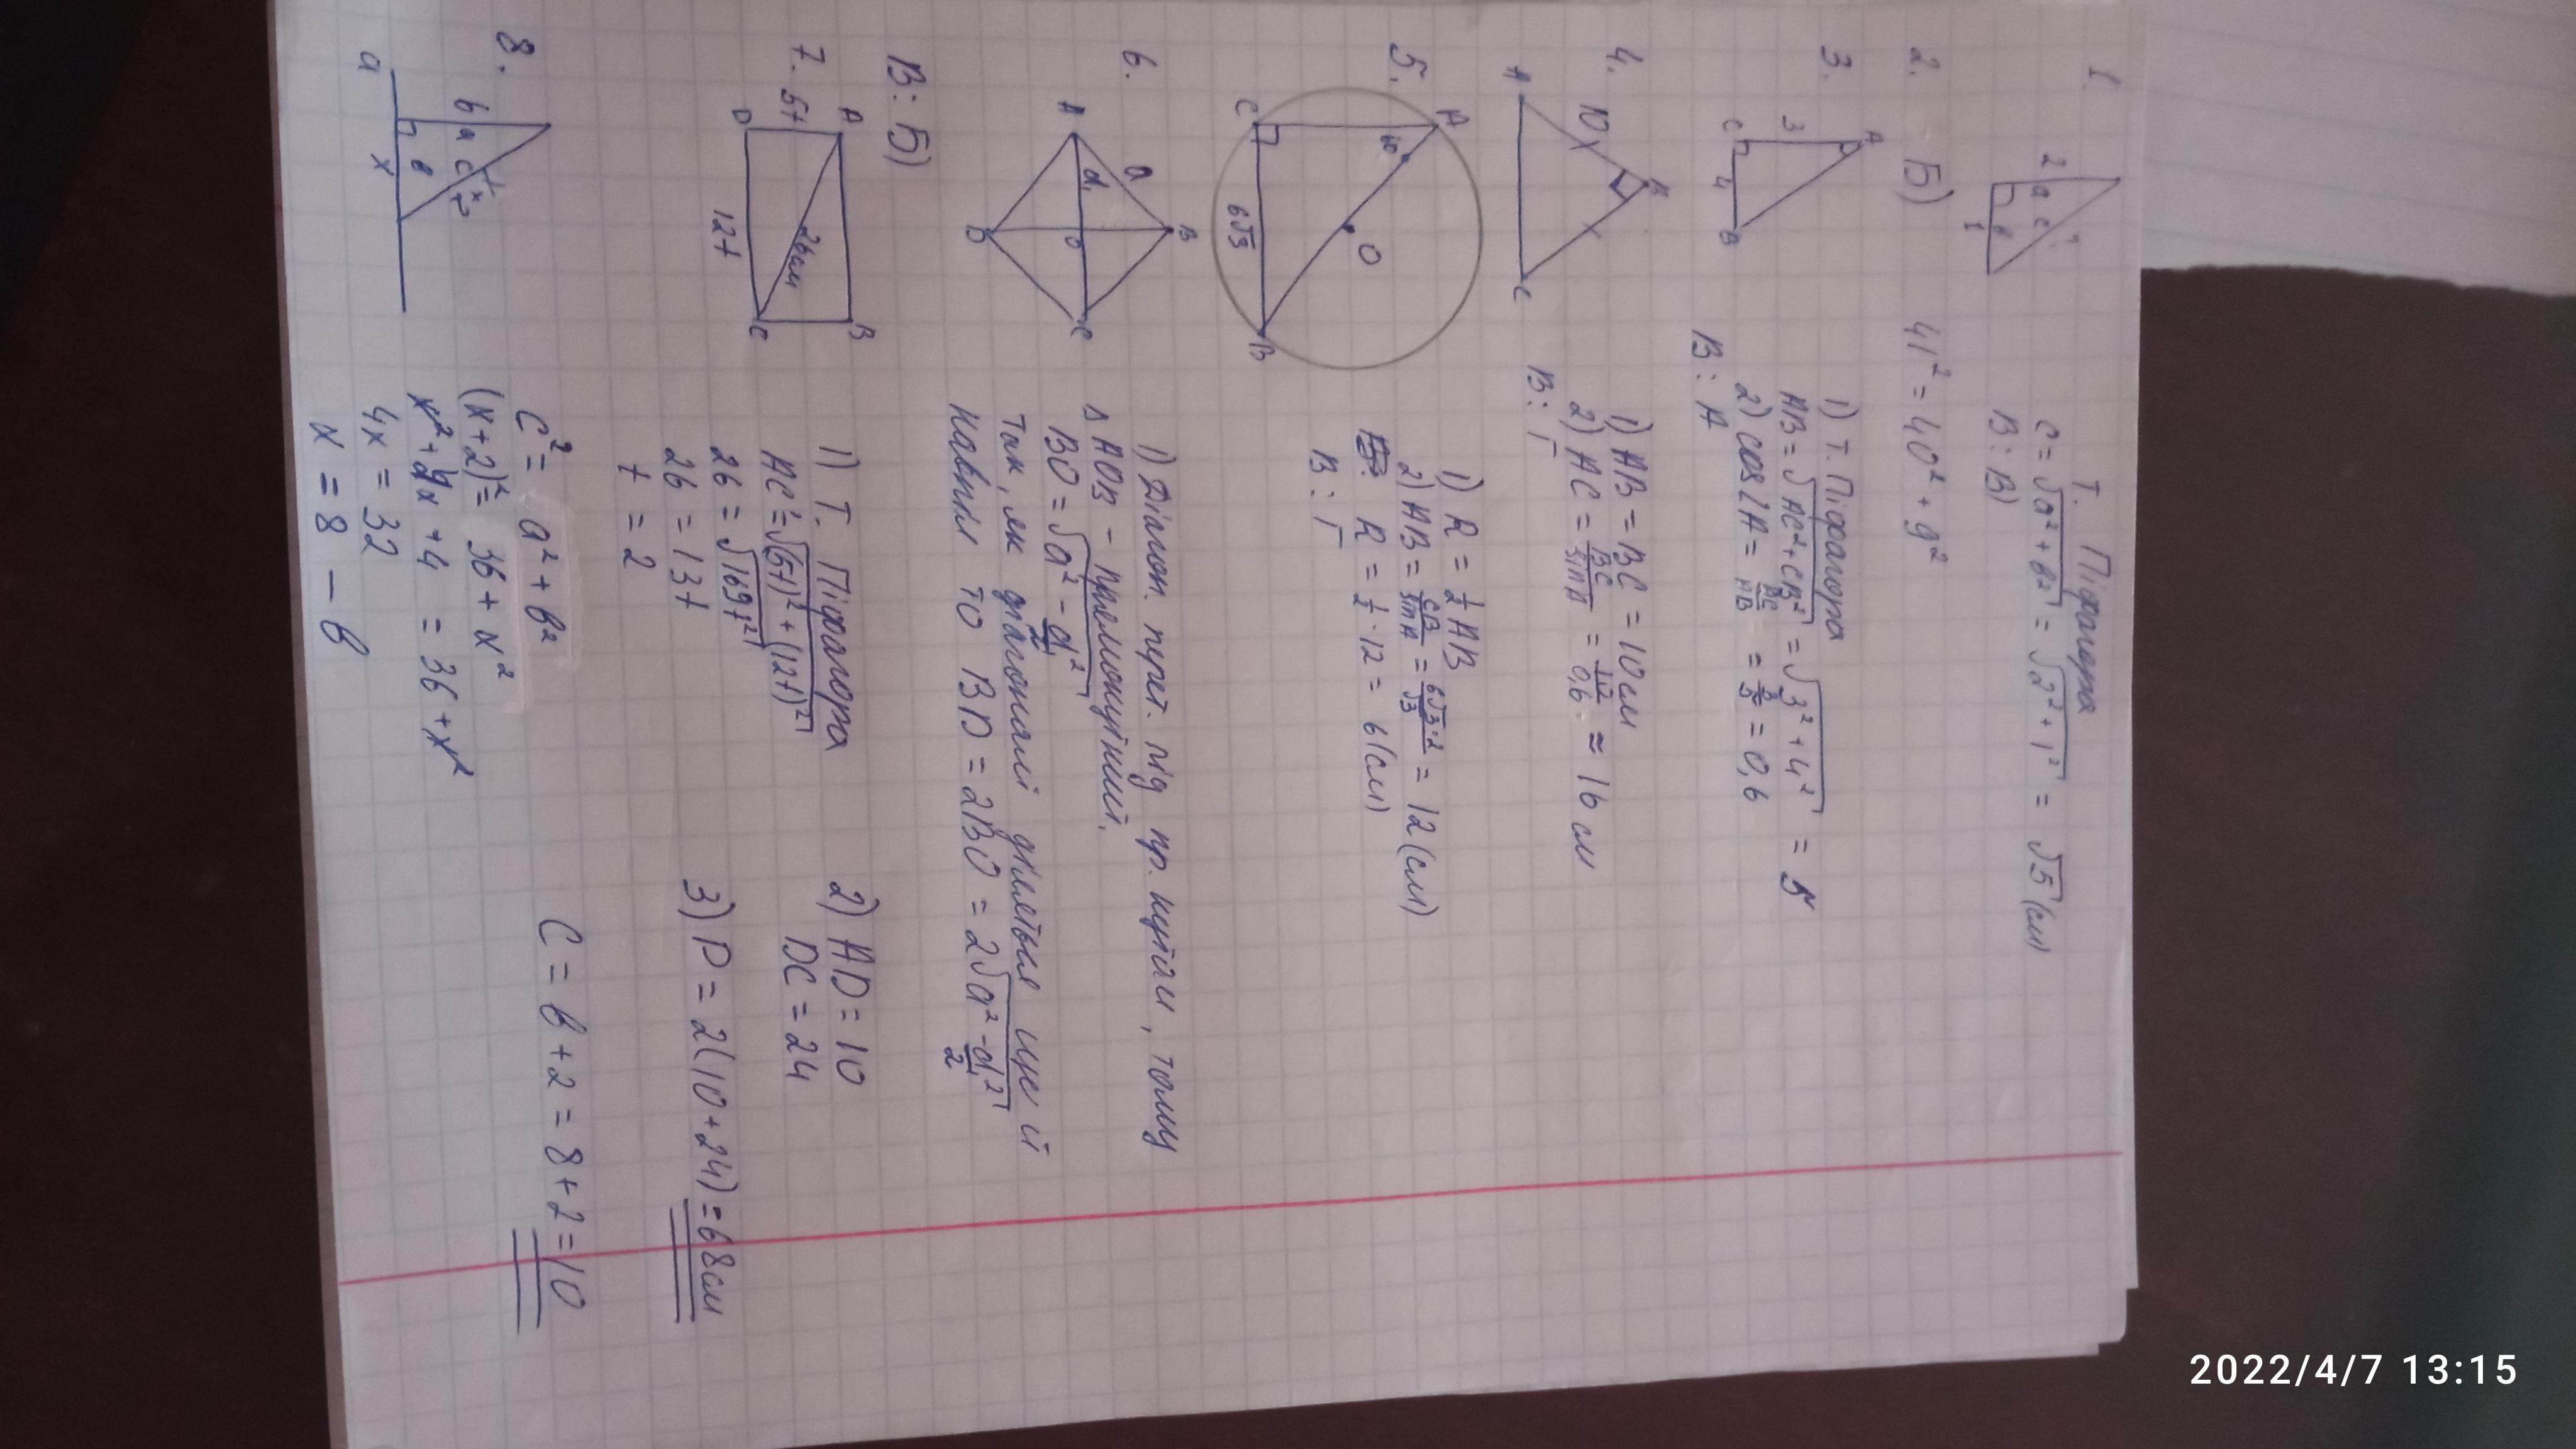 1.
2 a c ?
в
1
Т. Піфагора
c = √a² + в² = √2² + 1² = √5 (см)
В: В)
2. Б) 41² = 40² + 9²
3.
A
3
C 4 B
1) Т. Піфагора
AB = √AC² + CB² = √3² + 4² = 5
2) cos∠A = AC/AB = 3/5 = 0,6
В: А
4.
10 B
A C
1) AB = BC = 10см
2) AC = BC/sinA = 10/0,6 ≈ 16 см
В: Г
5.
A
60
O
C 6√3 B
1) R = ½ AB
2) AB = CB/sinA = 6√3·2/√3 = 12 (см)
R = ½ · 12 = 6 (см)
В: Г
6.
B
a
A d₁ O C
D
1) Діагон. перет. під пр. кутом, тому
Δ AOB – прямокутний.
BO = √a² - d₁²/2
Так, як діагоналі діляться ще й
навпіл то BD = 2BO = 2√a² - d₁²/2
В: Б)
7.
A B
5t 26см
D 12t C
1) Т. Піфагора
AC = √(5t)² + (12t)²
26 = √169t²
26 = 13t
t = 2
2) AD = 10
DC = 24
3) P = 2(10 + 24) = 68см
8.
6 a c x+2
в
a x
c² = a² + в²
(x+2)² = 36 + x²
x² + 4x + 4 = 36 + x²
4x = 32
x = 8 – в
C = в + 2 = 8 + 2 = 10
2022/4/7 13:15